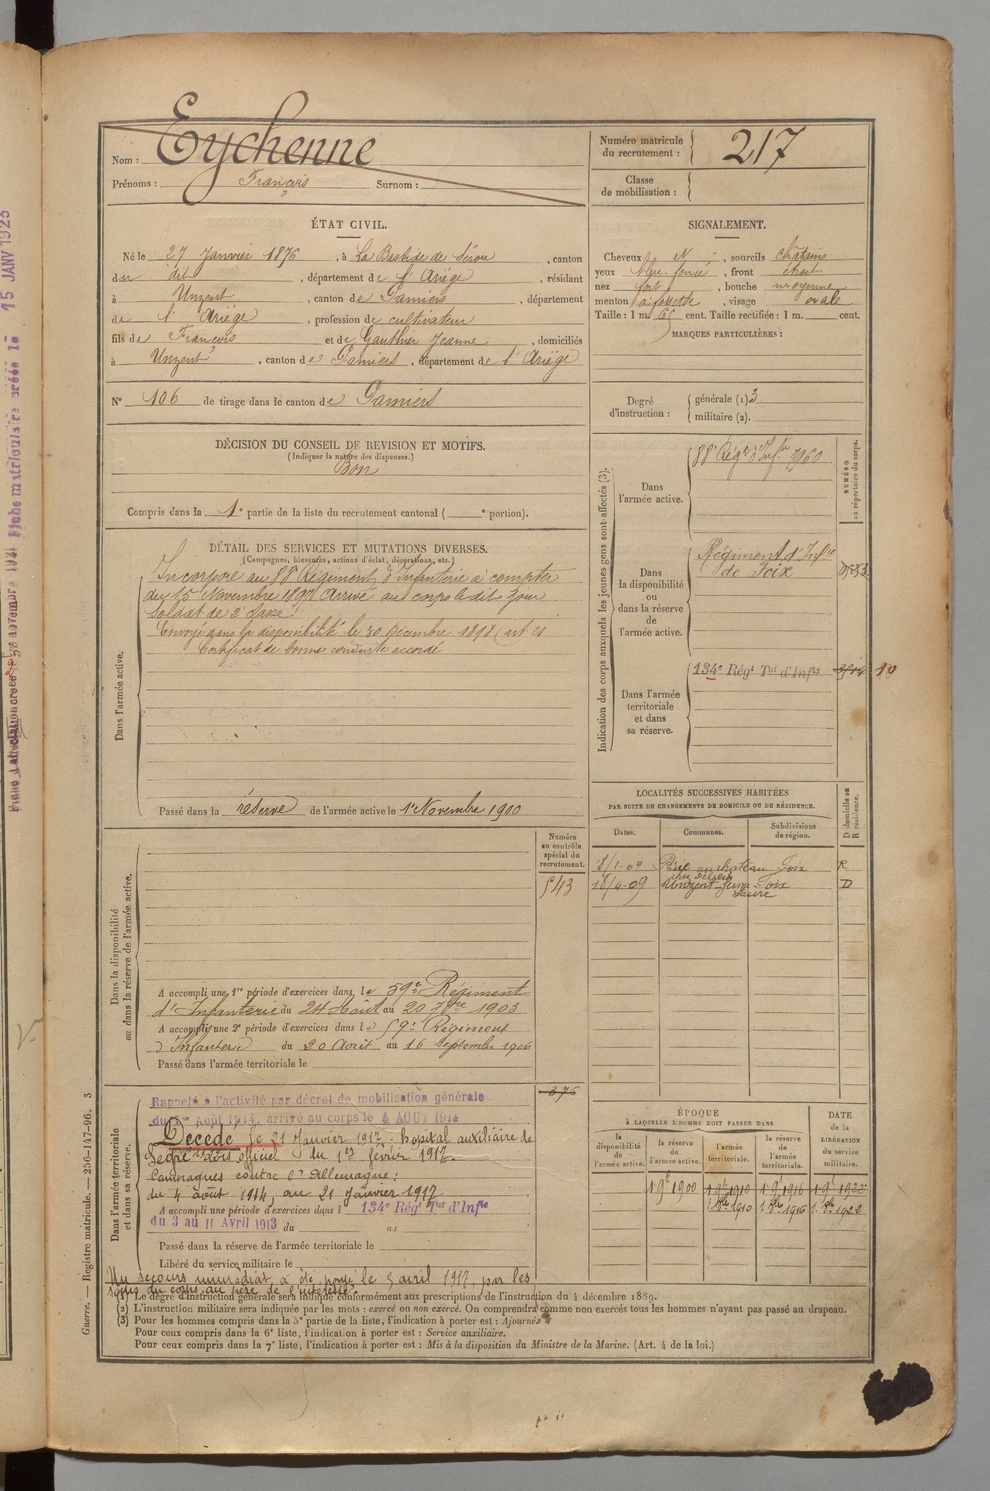 Nom : Eychenne
Prénoms : François Surnom :
Numéro matricule du recrutement : 217
Classe de mobilisation :
ÉTAT CIVIL.
Né le 27 Janvier 1876, à La Bastide de Sérou, canton
du dit, département de l'Ariège, résidant
à Unzent, canton de Pamiers, département
de l'Ariège, profession de cultivateur
fils de François et de Gauthier Jeanne, domiciliés
à Unzent, canton de Pamiers, département de l'Ariège
N° 106 de tirage dans le canton de Pamiers
SIGNALEMENT.
Cheveux N, sourcils châtains
yeux bleu-foncé, front étroit
nez fort, bouche moyenne
menton à fossette, visage ovale
Taille : 1 m. 65 cent. Taille rectifiée : 1 m. cent.
MARQUES PARTICULIÈRES :
Degré d'instruction : générale (1) 3
militaire (2).
DÉCISION DU CONSEIL DE REVISION ET MOTIFS.
(Indiquer la nature des dispenses.)
Bon
Compris dans la 1e partie de la liste du recrutement cantonal ( e portion).
DÉTAIL DES SERVICES ET MUTATIONS DIVERSES.
(Campagnes, blessures, actions d'éclat, décorations, etc.)
Dans l'armée active.
Incorporé au 88e Régiment d'Infanterie à compter
du 15 Novembre 1897 Arrivé au corps le dit jour
Soldat de 2e classe
Envoyé dans la disponibilité le 30 décembre 1898
Certificat de bonne conduite accordé
Passé dans la réserve de l'armée active le 1er Novembre 1900
Indication des corps auxquels les jeunes gens sont affectés (3).
NUMÉRO au répertoire du corps.
Dans l'armée active.
88e Régt d'Infie
Dans la disponibilité ou dans la réserve de l'armée active.
Régiment d'Infie
de Foix
Dans l'armée territoriale et dans sa réserve.
134e Régt Tal d'Infie
10
LOCALITÉS SUCCESSIVES HABITÉES
PAR SUITE DE CHANGEMENTS DE DOMICILE OU DE RÉSIDENCE.
Dates. Communes. Subdivisions de région. D domicile ou R résidence.
8/1-09 Brie au chateau Foix R
18/4-09 Unzent Foix D
Numéro au contrôle spécial du recrutement.
543
Dans la disponibilité ou dans la réserve de l'armée active.
A accompli une 1re période d'exercices dans le 59e Régiment
d'Infanterie du 24 Août au 20 7bre 1903
A accompli une 2e période d'exercices dans le 59e Régiment
d'Infanterie du 20 Août au 16 Septembre 1906
Passé dans l'armée territoriale le
Dans l'armée territoriale et dans sa réserve.
Rappelé à l'activité par décret de mobilisation générale
du 1er Août 1914, arrivé au corps le 4 AOUT 1914
Décédé le 21 Janvier 1917, hopital auxiliaire de
officiel du 1er février 1917.
Campagnes contre l'Allemagne :
du 4 août 1914, au 21 Janvier 1917
A accompli une période d'exercices dans l 134e Régt Tal d'Infie
du 3 au 11 Avril 1913 du au
Passé dans la réserve de l'armée territoriale le
Libéré du service militaire le
Un secours immédiat a été payé le 5 avril 1917, par les
soins du corps, au père de l'intéressé.
ÉPOQUE
À LAQUELLE L'HOMME DOIT PASSER DANS
la disponibilité de l'armée active. la réserve de l'armée active. l'armée territoriale. la réserve de l'armée territoriale.
DATE DE LA LIBÉRATION du service militaire.
1 9bre 1900 1 9bre 1910 1 9bre 1916 1 9bre 1922
1 8bre 1910 1 8bre 1916 1 8bre 1922
(1) Le degré d'instruction générale sera indiqué conformément aux prescriptions de l'instruction du 4 décembre 1889.
(2) L'instruction militaire sera indiquée par les mots : exercé ou non exercé. On comprendra comme non exercés tous les hommes n'ayant pas passé au drapeau.
(3) Pour les hommes compris dans la 5e partie de la liste, l'indication à porter est : Ajournés
Pour ceux compris dans la 6e liste, l'indication à porter est : Service auxiliaire.
Pour ceux compris dans la 7e liste, l'indication à porter est : Mis à la disposition du Ministre de la Marine. (Art. 4 de la loi.)
Guerre. — Registre matricule. — 256-147-96. 3
15 JANV 1925